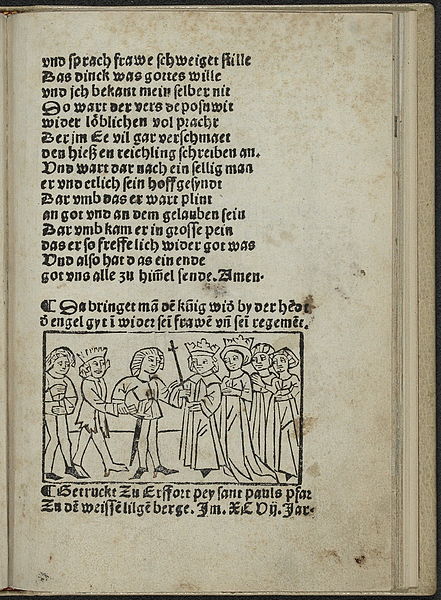 vnd sprach frawe schweiget stille
Das dinck was gottes wille
vnd jch bekant mein selber nit
So wart der vers deposuit
wider löblichen vol pracht
Der jm Ee vil gar verschmaet
den hieß en teichling schreiben an.
Vnd wart dar nach ein sellig man
er vnd etlich sein hoffgesyndt
Dar vmb das er wart plint
an got vnd an dem gelauben sein
Dar vmb kam er in grosse pein
das er so freffelich wider got was
Vnd also hat das ein ende
got vns alle zu him̅el sende. Amen.
¶ Da bringet mā dē kūnig wið by der hēdt
ð engel gyt ī wider sei frawē vn̄ sei regemēt.
¶ Getruckt Zu Erffort pey sant pauls pfar
Zu dē weissē lilgē berge. Jm. XC Vij. Jar.